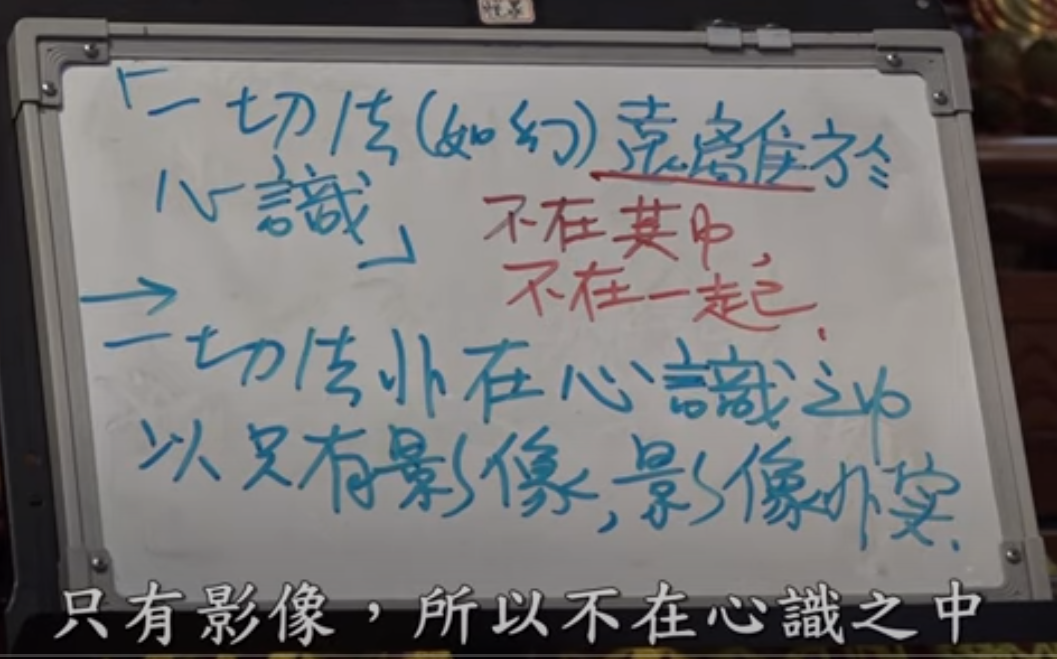 「一切法(如幻)遠離於
心識」
不在其中,
不在一起.
→
一切法非在心識之中
以只有影像,影像非實.
只有影像，所以不在心識之中